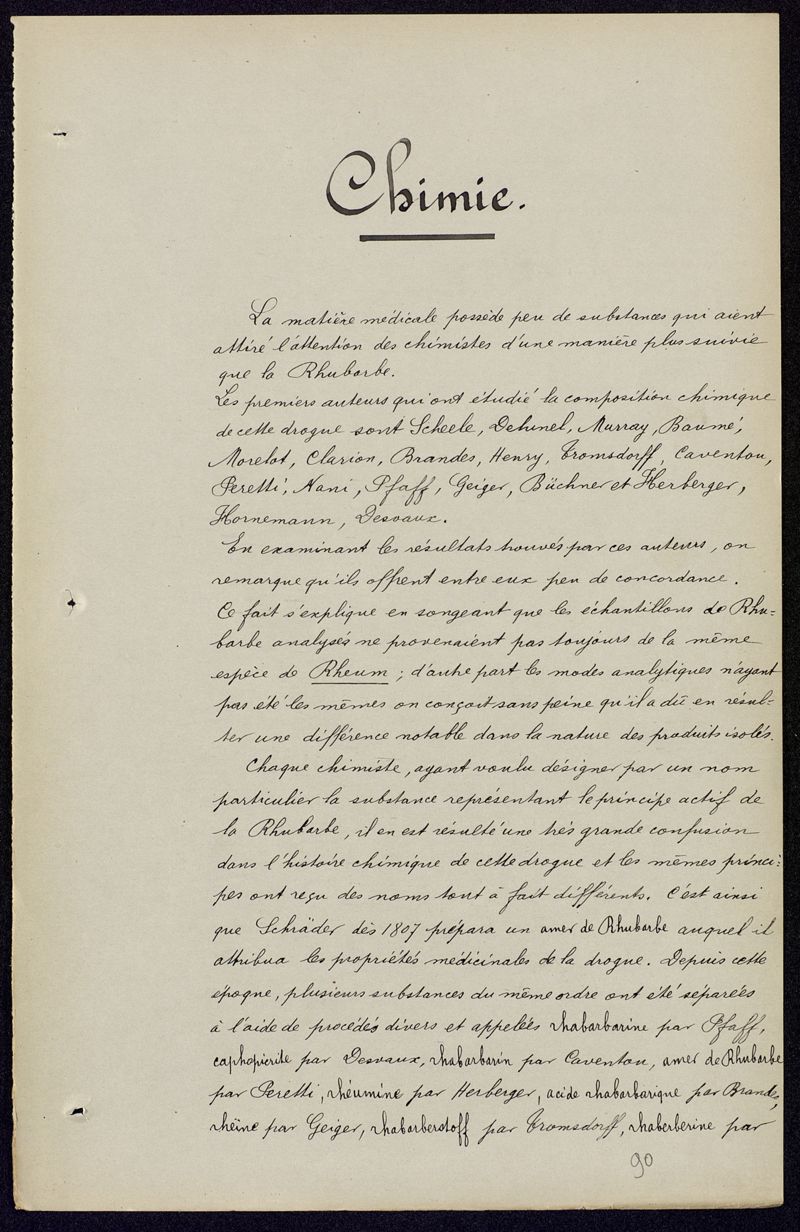 Chimie.
La matière médicale possède peu de substances qui aient
attiré l'attention des chimistes d'une manière plus suivie
que la Rhubarbe.
Les premiers auteurs qui ont étudié la composition chimique
de cette drogue sont Scheele, Delunel, Murray, Baumé,
Morelot, Clarion, Brandes, Henry, Tromsdorff, Caventou,
Peretti, Nani, Pfaff, Geiger, Büchner et Herberger,
Hornemann, Desvaux.
En examinant les résultats trouvés par ces auteurs, on
remarque qu'ils offrent entre eux peu de concordance.
Ce fait s'explique en songeant que les échantillons de Rhu-
barbe analysés ne provenaient pas toujours de la même
espèce de Rheum ; d'autre part les modes analytiques n'ayant
pas été les mêmes on conçoit sans peine qu'il a dû en résul-
ter une différence notable dans la nature des produits isolés.
Chaque chimiste, ayant voulu désigner par un nom
particulier la substance représentant le principe actif de
la Rhubarbe, il en est résulté une très grande confusion
dans l'histoire chimique de cette drogue et les mêmes princi-
pes ont reçu des noms tout à fait différents. C'est ainsi
que Schräder dès 1807 prépara un amer de Rhubarbe auquel il
attribua les propriétés médicinales de la drogue. Depuis cette
époque, plusieurs substances du même ordre ont été séparées
à l'aide de procédés divers et appelées rhabarbarine par Pfaff,
caphopicrite par Desvaux, rhabarbarin par Caventou, amer de Rhubarbe
par Peretti, rhéumine par Herberger, acide rhabarbarique par Brandes,
rhéine par Geiger, rhabarberstoff par Tromsdorff, rhaberberine par
90